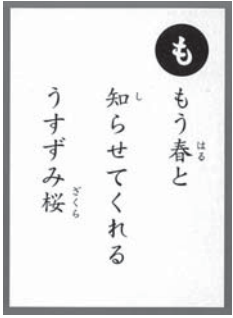 も
もう春と
はる
知らせてくれる
し
うすずみ桜
ざくら